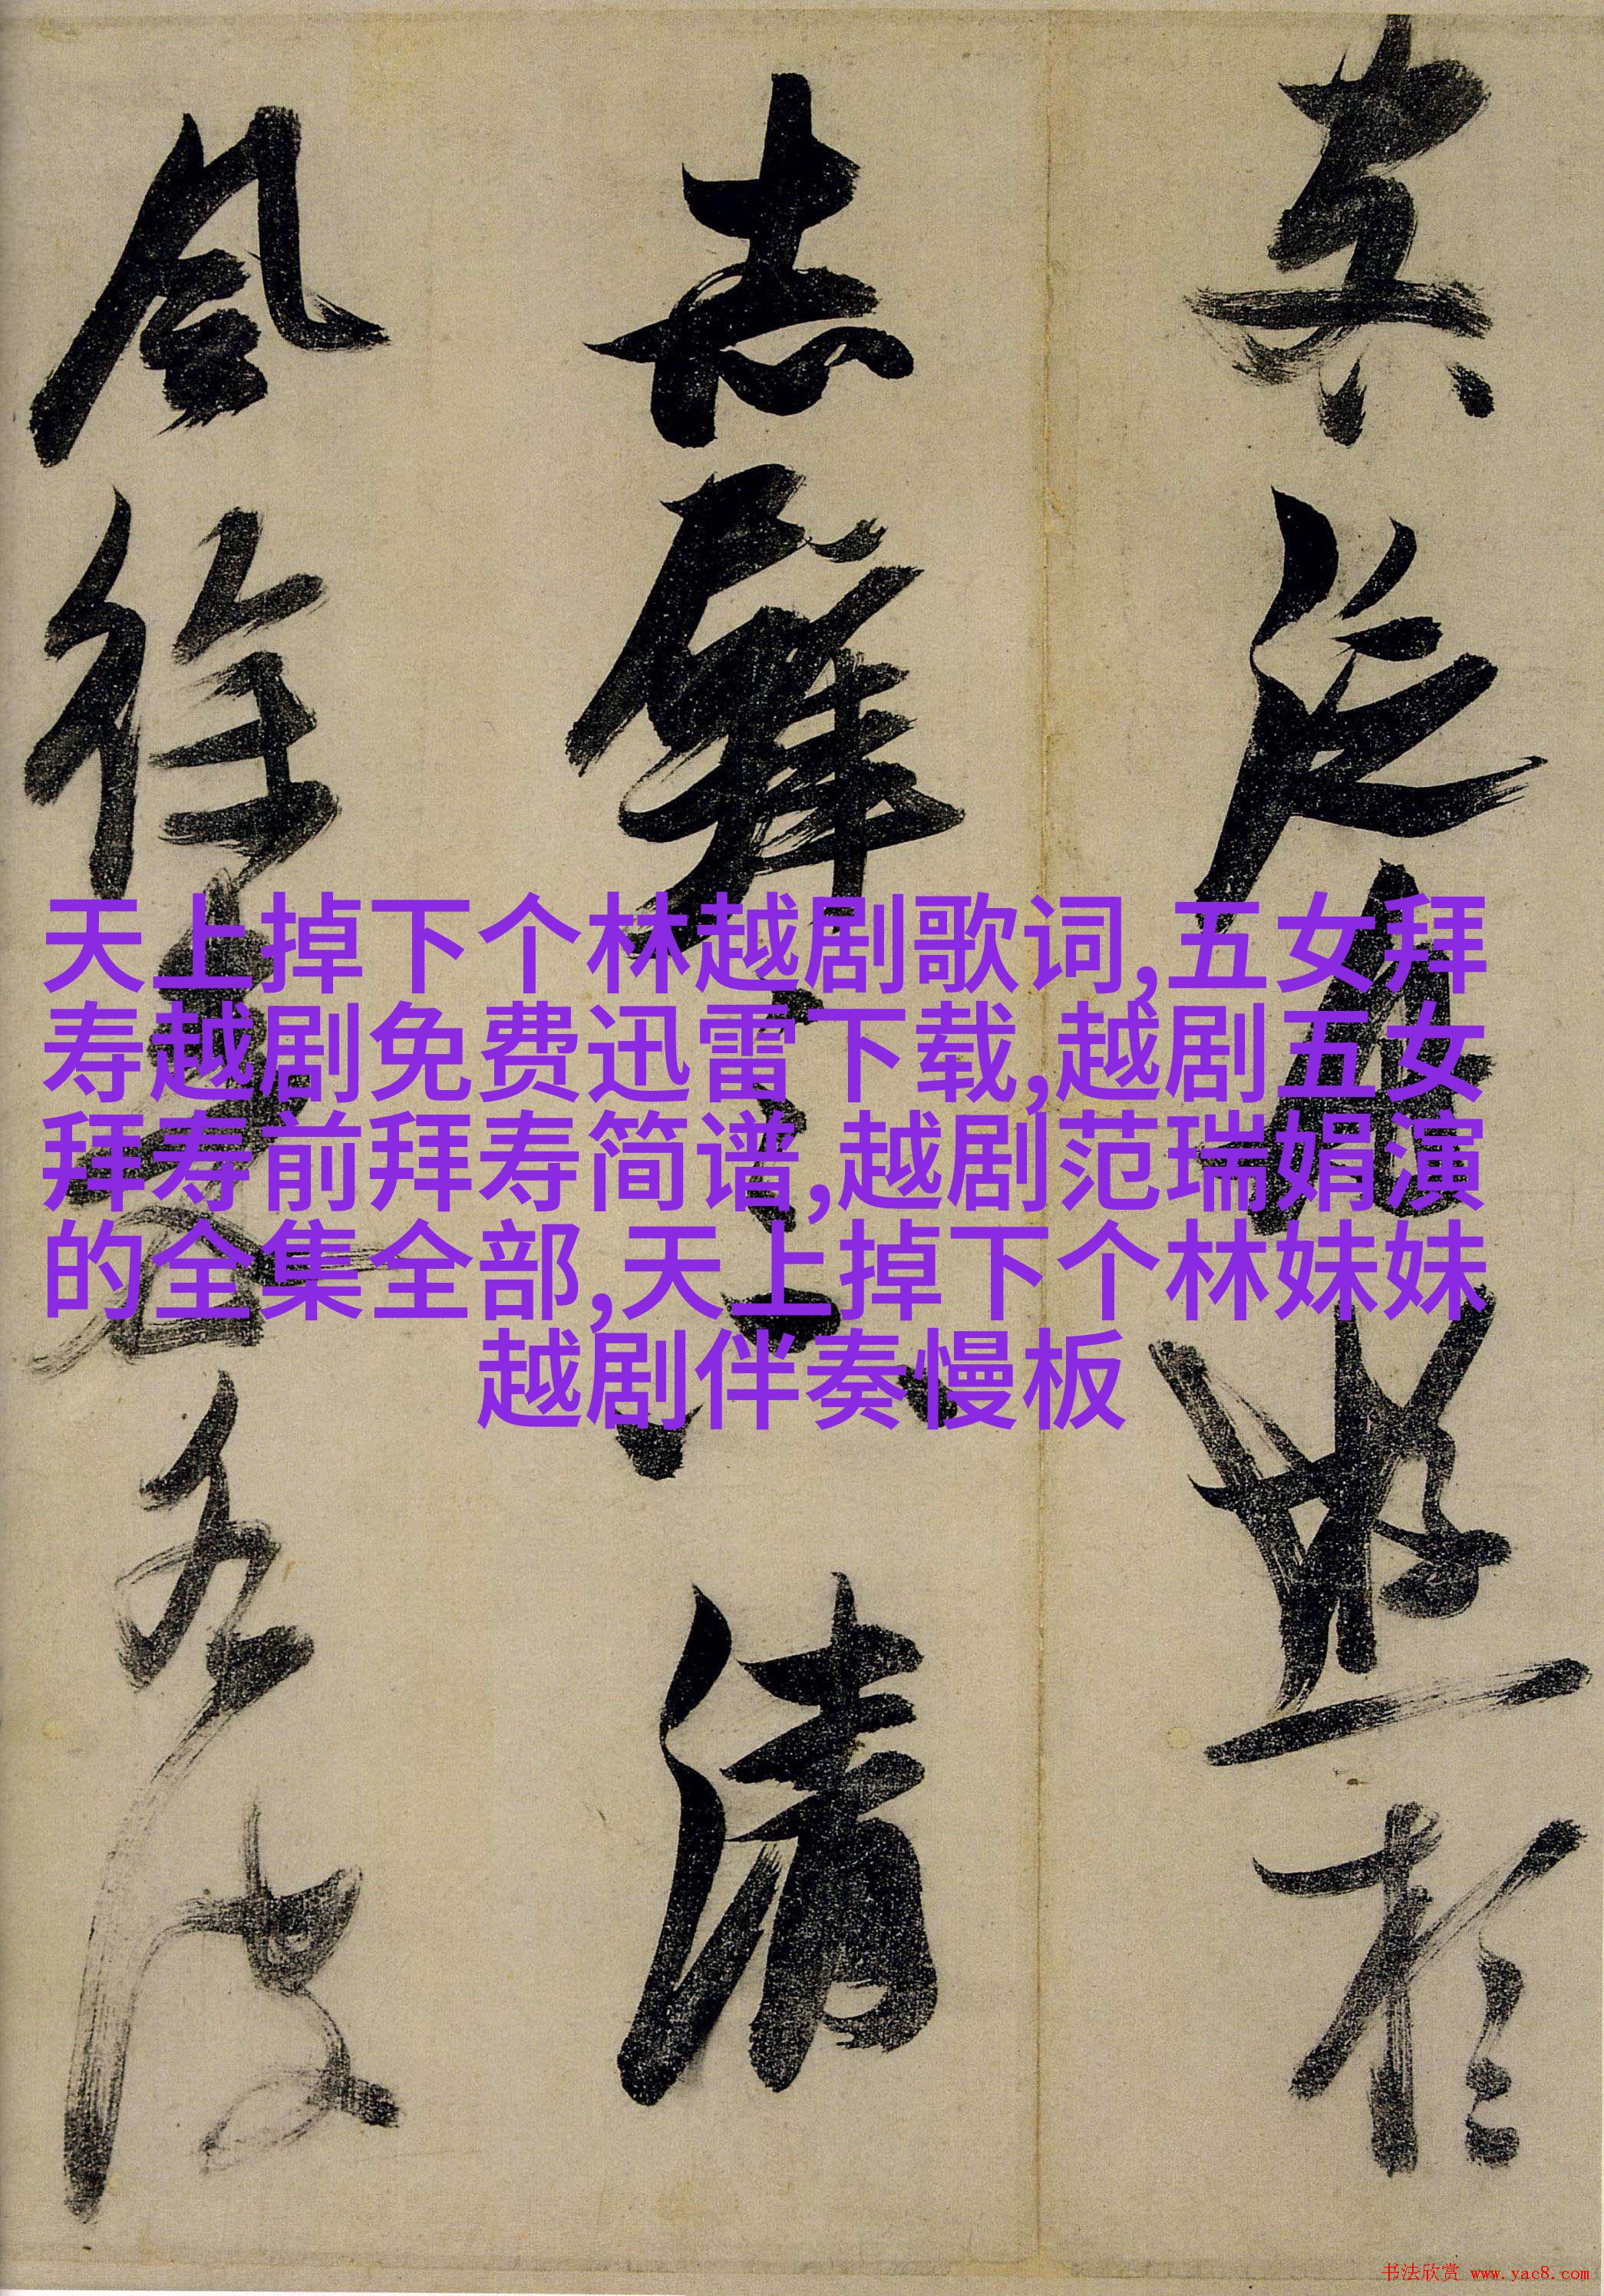 泛舟遊於
赤壁之下清
風徐來水波
天上掉下个林越剧歌词,五女拜
寿越剧免费迅雷下载,越剧五女
拜寿前拜寿简谱,越剧范瑞娟演
的全集全部,天上掉下个林妹妹
越剧伴奏慢板
书法欣赏 www.yac8.com